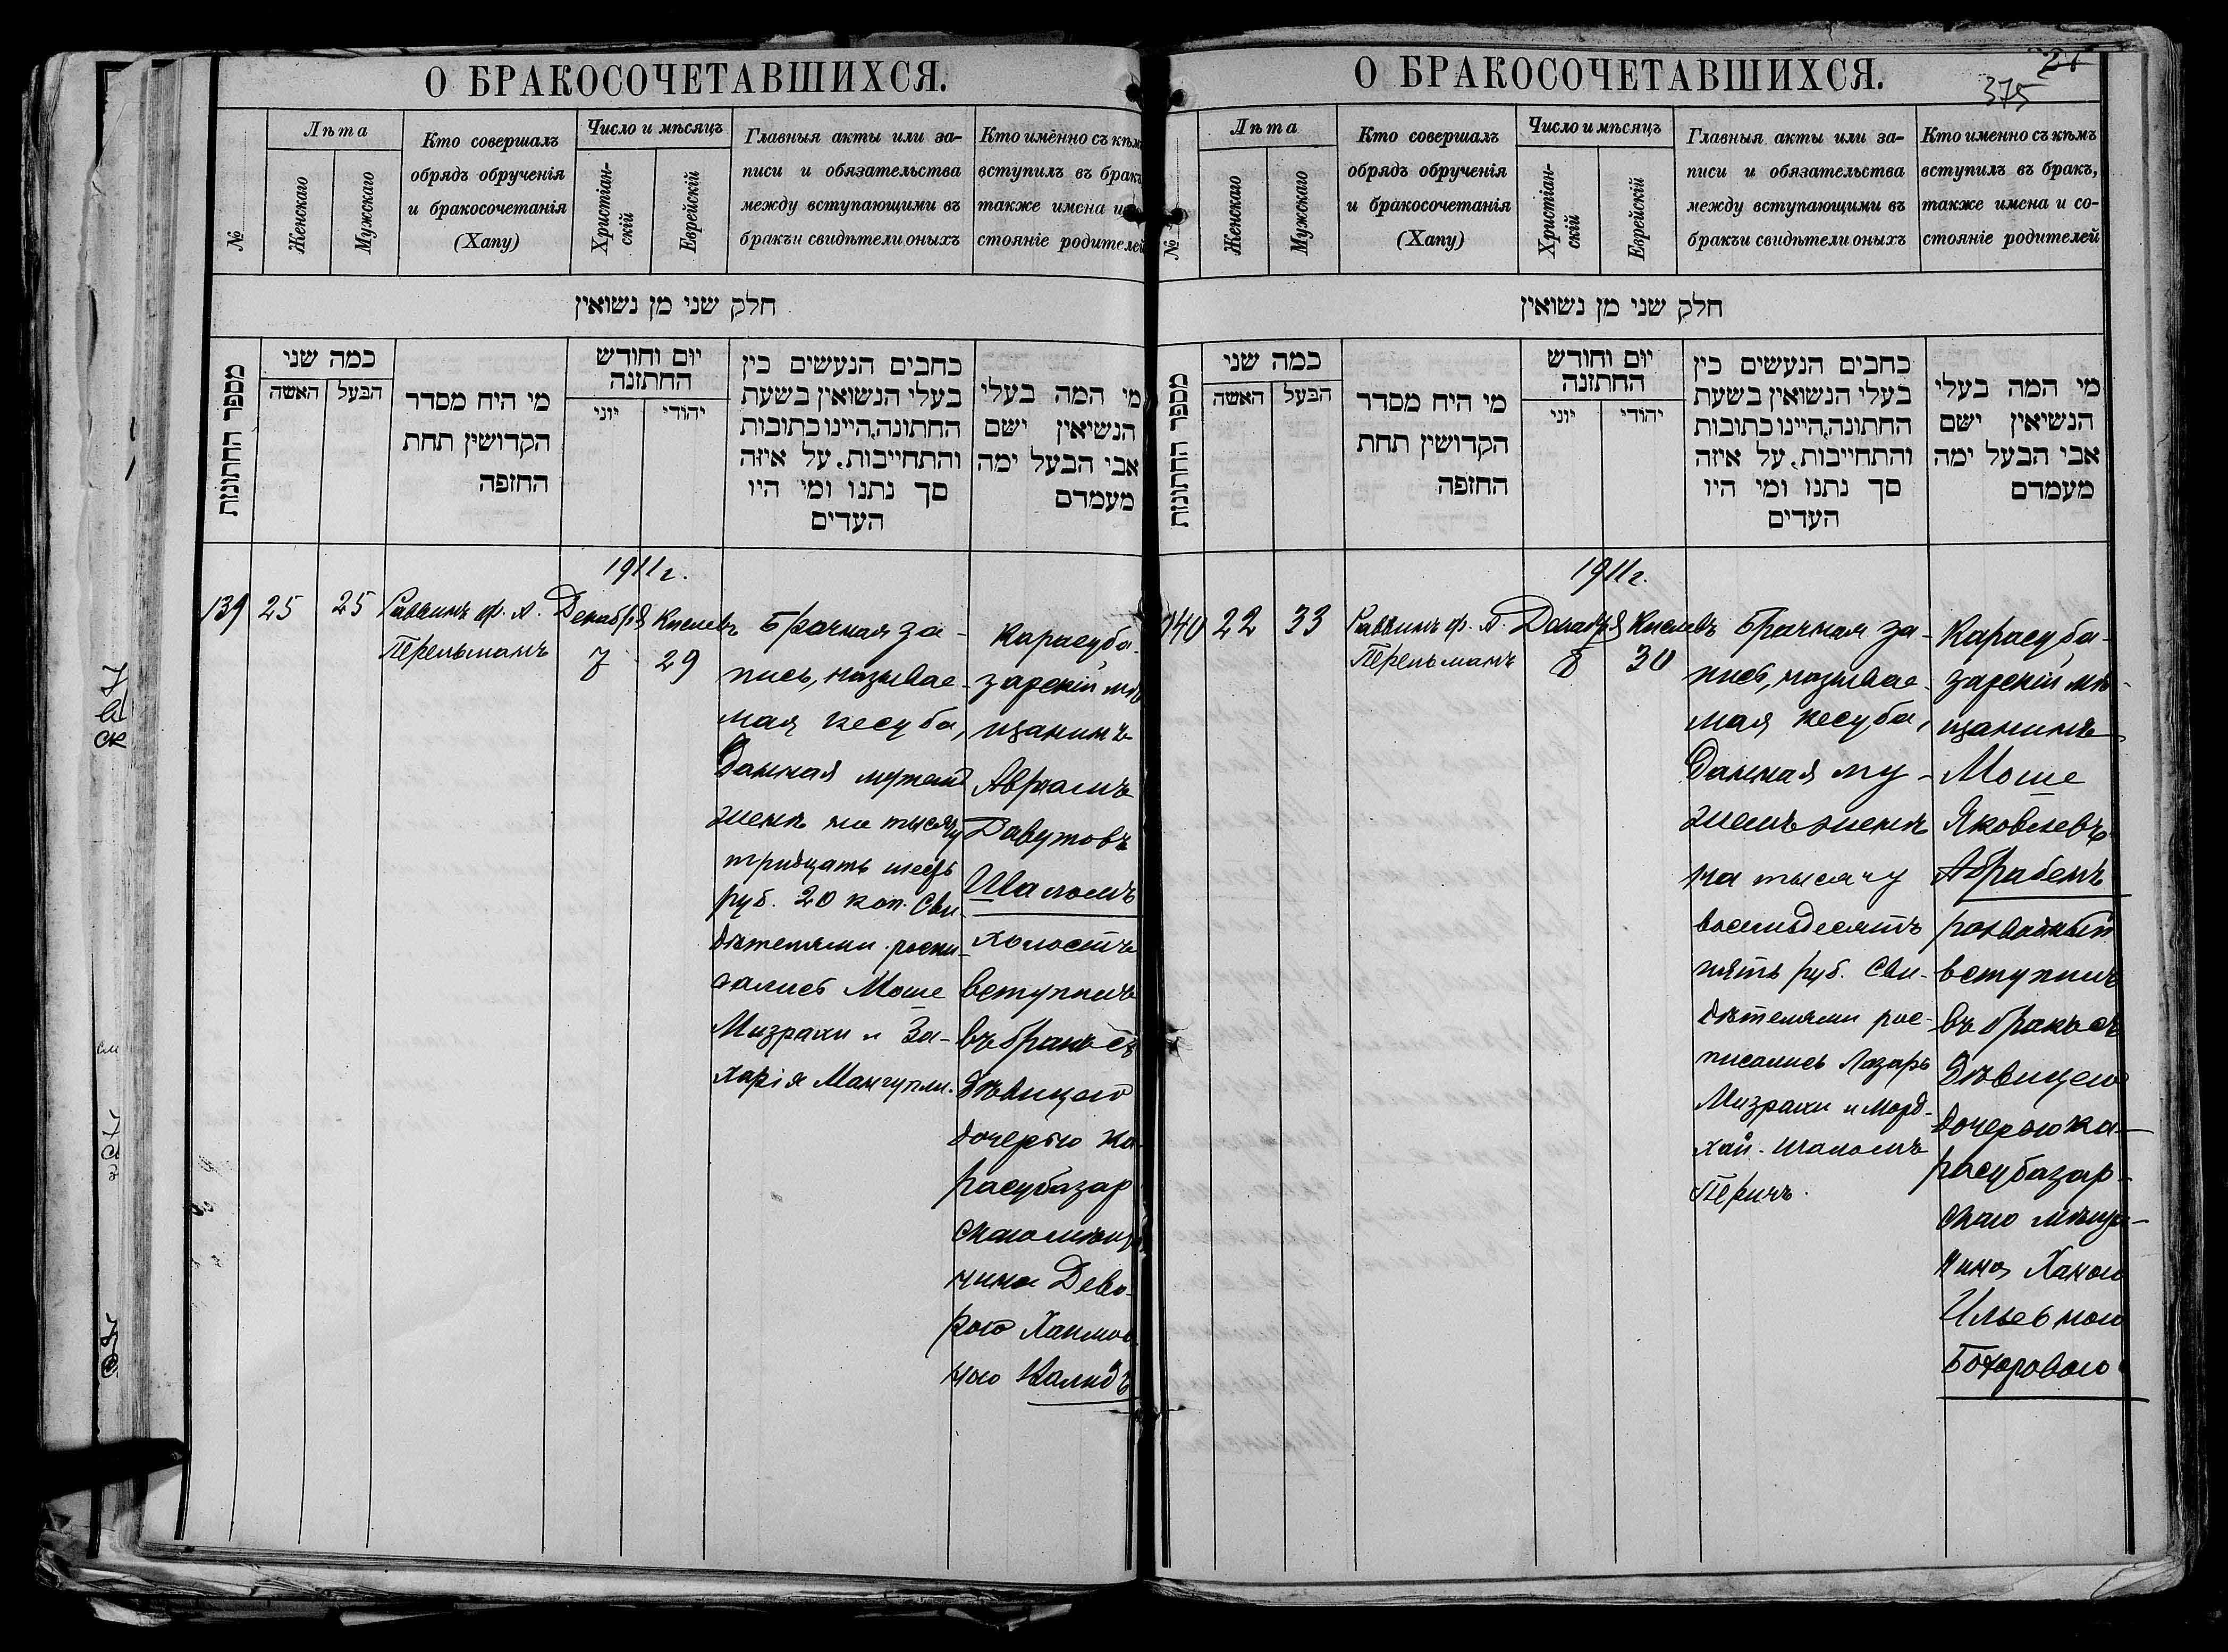 О БРАКОСОЧЕТАВШИХСЯ.
№
Лѣта
Женскаго
Мужскаго
Кто совершалъ
обрядъ обрученія
и бракосочетанія
(Хапу)
Число и мѣсяцъ
Христіан-
скій
Еврейскій
Главныя акты или за-
писи и обязательства
между вступающими въ
бракъ и свидѣтели оныхъ
Кто именно съ кѣмъ
вступилъ въ бракъ,
также имена и со-
стояніе родителей
חלק שני מן נשואין
מספר החתונות
כמה שני
האשה
הבעל
מי היח מסדר
הקדושין תחת
החופה
יום וחודש
החתונה
יוני
יהודי
כתבים הנעשים בין
בעלי הנשואין בשעת
החתונה, היינו כתובות
והתחייבות, על איזה
סך נתנו ומי היו
העדים
מי המה בעלי
הנשיאין ישם
אבי הבעל ימה
מעמדם
1911 г.
139
25
25
Раввинъ Ф. А.
Перельманъ
Декабря
7
Кислевъ
29
Брачная за-
пись, называе-
мая кесуба,
данная мужемъ
женѣ на тысячу
тридцать шесть
руб. 20 коп. Сви-
дѣтелями роспи-
сались Моше
Мизрахи и За-
харія Мангупли.
Карасуба-
зарскій мѣ-
щанинъ
Авраамъ
Давутовъ
Шаломъ
холостъ
вступилъ
въ бракъ съ
дѣвицею
дочерью Ка-
расубазар-
скаго мѣща-
нина Дево-
рою Хаимов-
ною Валидъ
О БРАКОСОЧЕТАВШИХСЯ.
27
375
№
Лѣта
Женскаго
Мужскаго
Кто совершалъ
обрядъ обрученія
и бракосочетанія
(Хапу)
Число и мѣсяцъ
Христіан-
скій
Еврейскій
Главныя акты или за-
писи и обязательства
между вступающими въ
бракъ и свидѣтели оныхъ
Кто именно съ кѣмъ
вступилъ въ бракъ,
также имена и со-
стояніе родителей
חלק שני מן נשואין
מספר החתונות
כמה שני
האשה
הבעל
מי היח מסדר
הקדושין תחת
החופה
יום וחודש
החתונה
יוני
יהודי
כתבים הנעשים בין
בעלי הנשואין בשעת
החתונה, היינו כתובות
והתחייבות, על איזה
סך נתנו ומי היו
העדים
מי המה בעלי
הנשיאין ישם
אבי הבעל ימה
מעמדם
1911 г.
140
22
33
Раввинъ Ф. А.
Перельманъ
Декабря
8
Кислевъ
30
Брачная за-
пись, называе-
мая кесуба,
данная му-
жемъ женѣ
на тысячу
восемьдесятъ
пять руб. Сви-
дѣтелями рос-
писались Лазарь
Мизрахи и Морд-
хай-Шаломъ
Перичъ.
Карасуба-
зарскій мѣ-
щанинъ
Моше
Яковлевъ
Абрабенъ
разводный
вступилъ
въ бракъ съ
дѣвицею
дочерью Ка-
расубазар-
скаго мѣща-
нина Ханою
Ильевною
Бохоровою